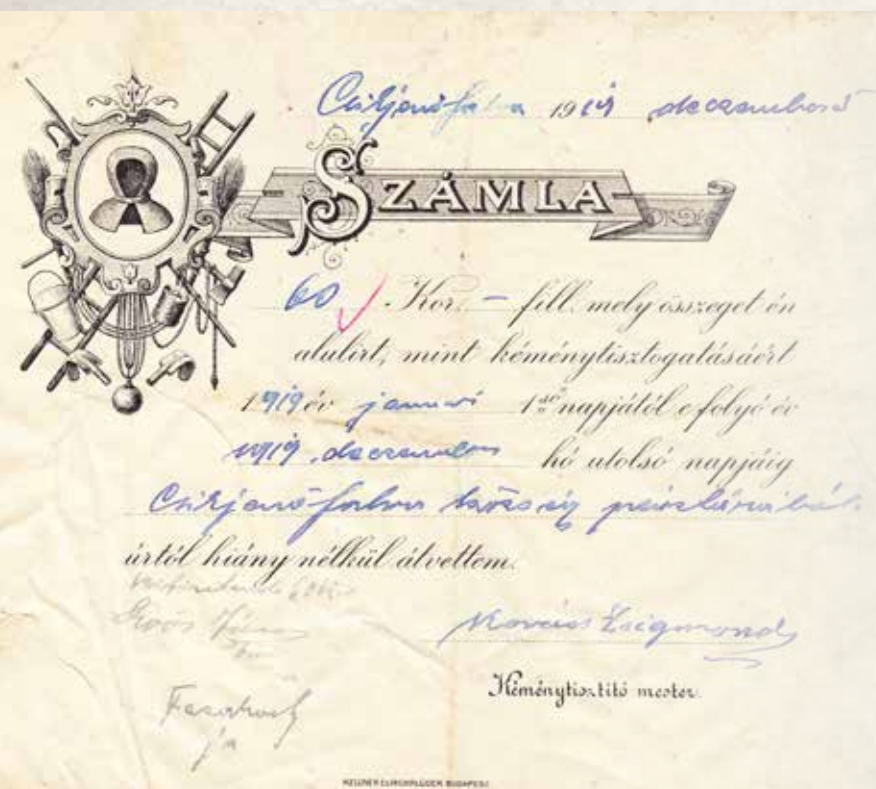 Csikjenőfalva 1919 deczember
SZÁMLA
60 Kor. – fill. mely összeget én
alulírt, mint kéménytisztogatásáért
1919 év január 1 napjától e folyó év
1919 deczember hó utolsó napjáig
Csikjenőfalva község pénztárából
úrtól hiány nélkül átvettem.
Kovács Zsigmond
Kéménytisztító mester.
BUDAPEST